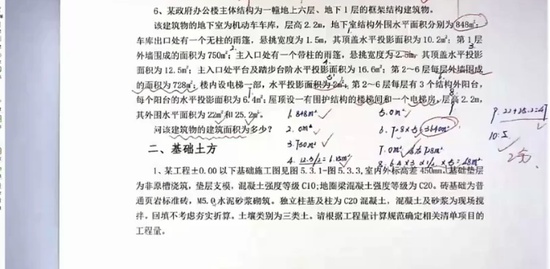 6、某政府办公楼主体结构为一幢地上六层、地下1层的框架结构建筑物。
该建筑物的地下室为机动车车库，层高2.2m，地下室结构外围水平面积分别为848m²；
车库出口处有一个无柱的雨篷，悬挑宽度为1.5m，其顶盖水平投影面积为10.2m²；第1层
外墙围成的面积为750m²；主入口处有一个带柱的雨篷，悬挑宽度为2.3m，其顶盖水平投影
面积为12.5m²；主入口处平台及踏步台阶水平投影面积为16.6m²；第2～6层每层外墙围成
的面积为728m²；楼内设电梯一部，水平投影面积为2m²；第2～6层每层有3个结构外阳台，
每个阳台的水平投影面积为6.4m²；屋顶设一有围护结构的楼梯间和一个电梯房，层高2.2m，
其外围水平面积为22m²和25.2m²。
问该建筑物的建筑面积为多少？
1. 848m²
2. 0m²
3. 750m²
4. 12.5/2=6.25m²
5. 0m²
6. 728×5=3640m²
7. 0m²
9. 22+25.2
10.
二、基础土方
1、某工程±0.00以下基础施工图见图5.3.1-图5.3.3，室内外标高差450mm。基础垫层
为非原槽浇筑，垫层支模，混凝土强度等级C10；地圈梁混凝土强度等级为C20。砖基础为普
通页岩标准砖，M5.0水泥砂浆砌筑。独立柱基及柱为C20混凝土，混凝土及砂浆为现场搅
拌。回填不考虑夯实折算。土壤类别为三类土。请根据工程量计算规范确定相关清单项目的
工程量。